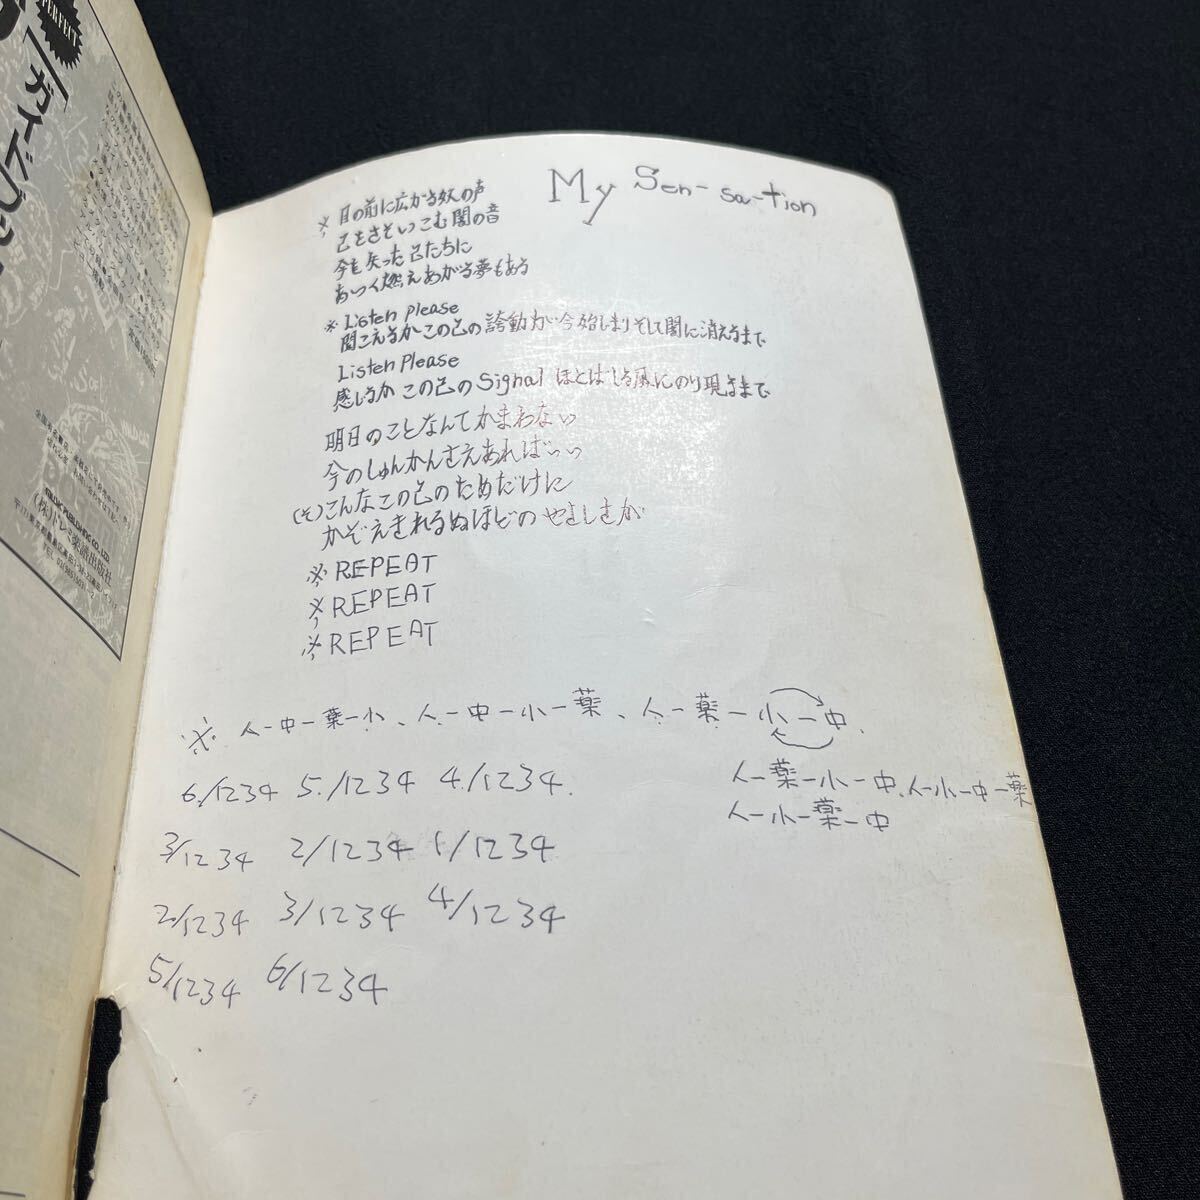 PERFECT
ガイドブッ
全国有名書店
DOREMI MUSIC PUBLISHING CO., LTD.
(株)ドレミ楽譜出版社
My Sen-sa-tion
※ 目の前に広がる妖の声
己をさそいこむ闇の音
今も失った己たちに
あつく燃えあがる夢もある
※ Listen please
聞こえるかこの己の誇動が今始しまりそして闇に消えるまで
Listen Please
感じるかこの己のSignalほとばしる風にのり現るまで
明日のことなんてかまわない
今のしゅんかんさえあればいい
(そ)こんなこの己のためだけに
かぞえきれるぬほどのやさしさが
※ REPEAT
※ REPEAT
※ REPEAT
※ 人ー中ー薬ー小、人ー中ー小ー薬、人ー薬ー小ー中.
人ー薬ー小ー中、人ー小ー中ー薬
人ー小ー薬ー中
6./1234 5./1234 4./1234.
3/1234 2/1234 1/1234
2/1234 3/1234 4/1234
5/1234 6/1234